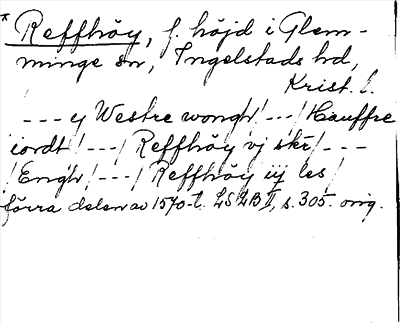 * Reffhöy, f. höjd i Glem-
minge sn, Ingelstads hd,
Krist. l.
--- y Westre wongh/---/Hauffre
iordt/---/Reffhöy vj skr/---
/Engh/---/Reffhöy iij les/
förra delen av 1570-t. LSLB II, s. 305. orig.